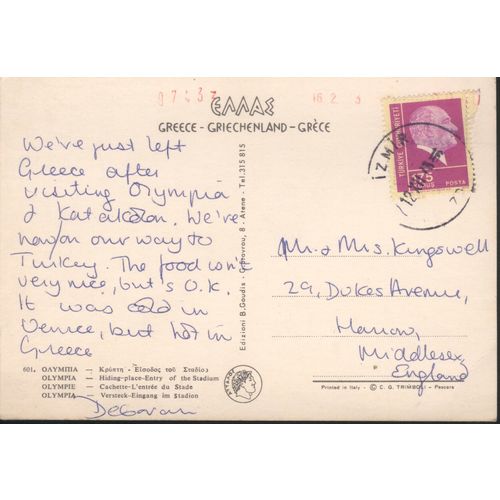 ΕΛΛΑΣ
GREECE - GRIECHENLAND - GRÈCE
We've just left
Greece after
visiting Olympia
& Katakolon. We're
now on our way to
Turkey. The food isn't
very nice, but's O.K.
It was cold in
Venice, but hot in
Greece
Deborah
601. ΟΛΥΜΠΙΑ — Κρύπτη - Είσοδος τοῦ Σταδίου
OLYMPIA — Hiding-place-Entry of the Stadium
OLYMPIE — Cachette-L'entrée du Stade
OLYMPIA — Versteck-Eingang im Stadion
Edizioni B. Goudis - 8 - Atene - Tel. 315 815
TÜRKİYE CUMHURİYETİ
175
KURUŞ POSTA
İZMİR
Mr. & Mrs. Kingswell
29, Dukes Avenue,
Harrow,
Middlesex
England
Printed in Italy - © C. G. TRIMBOLI - Pescara